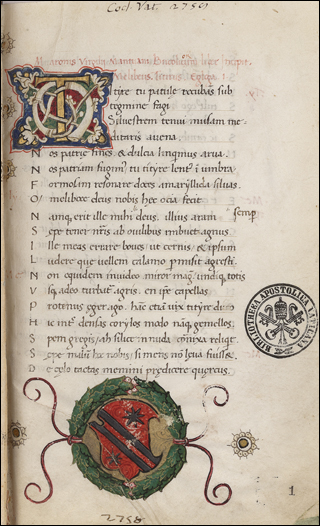 Cod. Vat. 2759
Maronis Virgilii Mantuani Bucolicorum liber incipit
Meliboeus, Tityrus Egloga 1
Tityre tu patule recubas sub
tegmine fagi
Silvestrem tenui musam me
ditaris avena.
Nos patrie fines & dulcia linqimus arva.
Nos patriam fugim9 tu tityre lent9 ī umbra
Formosam resonare doces amaryllida silvas.
O melibee deus nobis hec ocia fecit
Namq; erit ille mihi deus, illius aram semper
Sepe tener nr̄is ab ovilibus imbuet agnus
Ille meas errare boves ut cernis & ipsum
Ludere que vellem calamo pmisit agresti.
Non equidem invideo miror mag9 undiq; totis
Usq; adeo turbat agris. en ipse capellas
Protenus eger ago. hāc etiā vix tityre duco
Hic inter densas corylos modo nāq; gemellos
Spem gregis ah silice in nuda cōnixa reliqt
Sepe malū hoc nobis si mens nō leva fuisset
De celo tactas memini predicere quercus.
BIBLIOTHECA APOSTOLICA VATICANA
1
2758